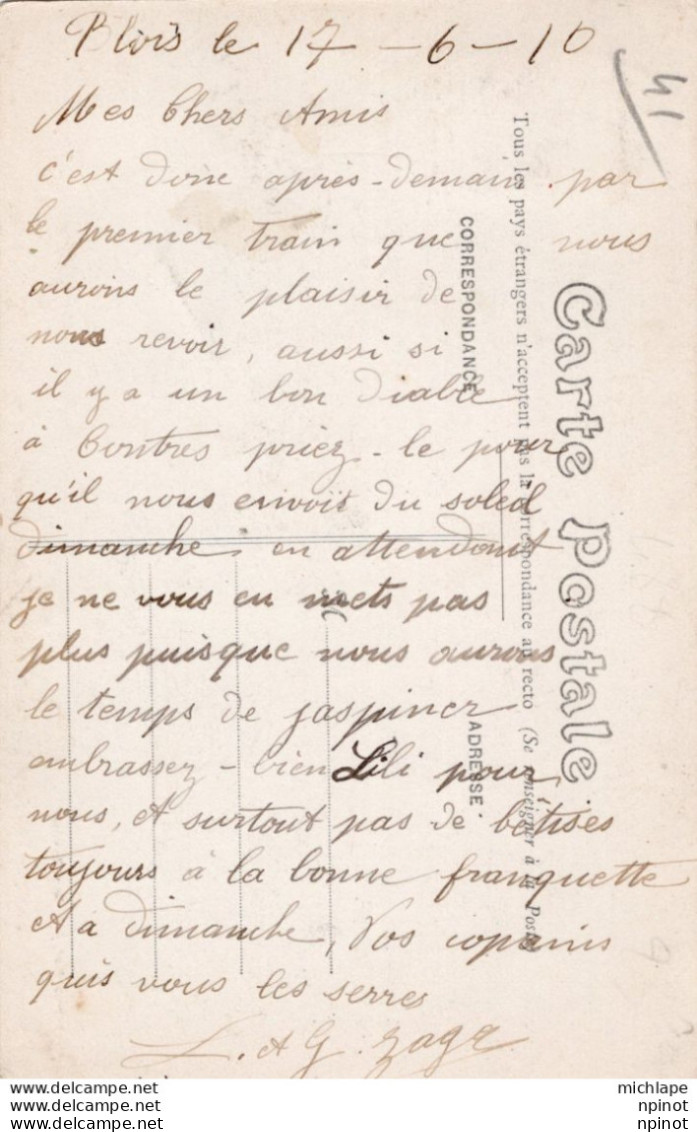 Blois le 17 - 6 - 10
41
Mes Chers Amis
c'est donc après-demain par
le premier train que nous
aurons le plaisir de
nous revoir, aussi si
il y a un bon diable
à Contres priez-le pour
qu'il nous envoit du soleil
dimanche en attendant
je ne vous en mets pas
plus puisque nous aurons
le temps de jaspiner
embrassez-bien Lili pour
nous, et surtout pas de bêtises
toujours à la bonne franquette
et a dimanche, Vos copains
quis vous les serres
L. et G.
Carte Postale
Tous les pays étrangers n'acceptent pas la correspondance au recto (Se renseigner à la Poste)
CORRESPONDANCE
ADRESSE
michlape
npinot npinot
www.delcampe.net
www.delcampe.net
www.delcampe.net